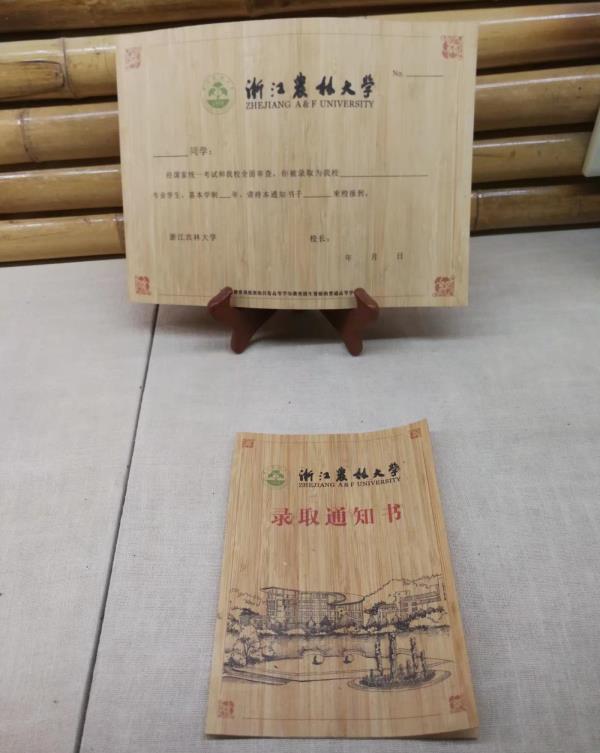 浙江农林大学
ZHEJIANG A&F UNIVERSITY
No.
同学:
经国家统一考试和我校全面审查,你被录取为我校
专业学生,基本学制 年,请持本通知书于 来校报到。
浙江农林大学 校长:
年 月 日
浙江农林大学
ZHEJIANG A&F UNIVERSITY
录取通知书